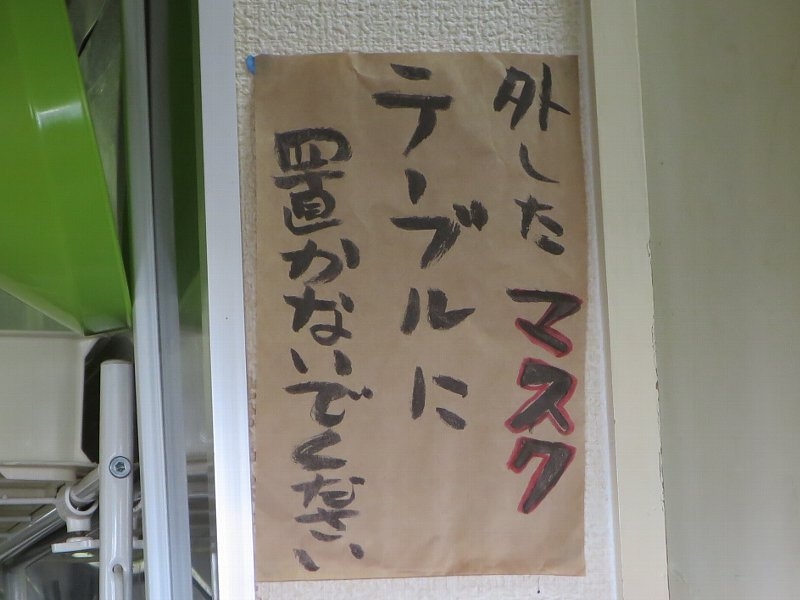 外したマスク
テーブルに
置かないでください